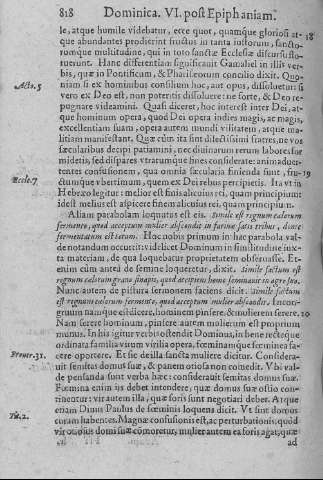 818 Dominica. VI. post Epiphaniam.
le, atque humile videbatur, ecce quot, quamque gloriosi at-
que abundantes prodierint fructus in tanta iustorum, sancto-
rumque multitudine, qui in toto sanctæ Ecclesiæ discursu flo-
ruerunt. Hanc differentiam significauit Gamaliel in illis ver-
bis, quæ in Pontificum, & Phariseorum concilio dixit. Quo-
niam si ex hominibus consilium hoc, aut opus, dissoluetur: si
vero ex Deo est, non poteritis dissoluere: ne forte, & Deo re-
pugnare videamini. Quasi diceret, hoc interest inter Dei, at-
que hominum opera, quod Dei opera indies magis, ac magis,
excellentiam suam, opera autem mundi vilitatem, atque ma-
litiam manifestant. Quæ cùm ita sint dilectissimi fratres, ne vos
sæcularibus decipi patiamini, nec diuinarum rerum labores for
midetis, sed dispares vtrarumque fines considerate: animaduer-
tentes confusionem, qua omnia sæcularia finienda sunt, fru-
ctumque vberrimum, quem ex Dei rebus percipietis. Ita vt in
Hebræo legitur: melior est finis alicuius rei, quam principium:
idest melius est aspicere finem alicuius rei, quam principium.
Aliam parabolam loquutus est eis. Simile est regnum cælorum
fermento, quod acceptum mulier abscondit in farinæ satis tribus, donec
fermentatum est totum. Hoc nobis primum in hac parabola val-
de notandum occurrit: videlicet Dominum in similitudine iux-
ta materiam, de qua loquebatur proprietatem obseruasse. Et-
enim cum antea de semine loqueretur, dixit. Simile factum est
regnum cælorum grano sinapis, quod accipiens homo seminauit in agro suo.
Nunc autem de pistura sermonem faciens dicit. Simile factum
est regnum cælorum fermento, quod acceptum mulier abscondit. Incon-
gruum namque est dicere, hominem pinsere, & mulierem serere.
Nam serere hominum, pinsere autem mulierum est proprium
munus. In his igitur verbis ostendit Dominus, in bene recteque
ordinata familia virum virilia opera, fœminamque fœminea fa-
cere oportere. Et sic de illa sancta muliere dicitur. Considera-
uit semitas domus suæ, & panem otiosa non comedit. Vbi val-
de pensanda sunt verba hæc: considerauit semitas domus suæ.
Fœmina etenim iis debet intendere, quæ domus suæ ostio con-
tinentur: vir autem illa, quæ foris sunt negotiari debet. Atque
etiam Diuus Paulus de fœminis loquens dicit. Vt sint domus
curam habentes. Magnæ confusionis est, ac perturbationis: quod
vir otiosus domi suæ commoretur, mulier autem ea foris agat, quæ
ad
Acto. 5
Eccle. 7
Prouer. 31.
Tit. 2.
18
19
20